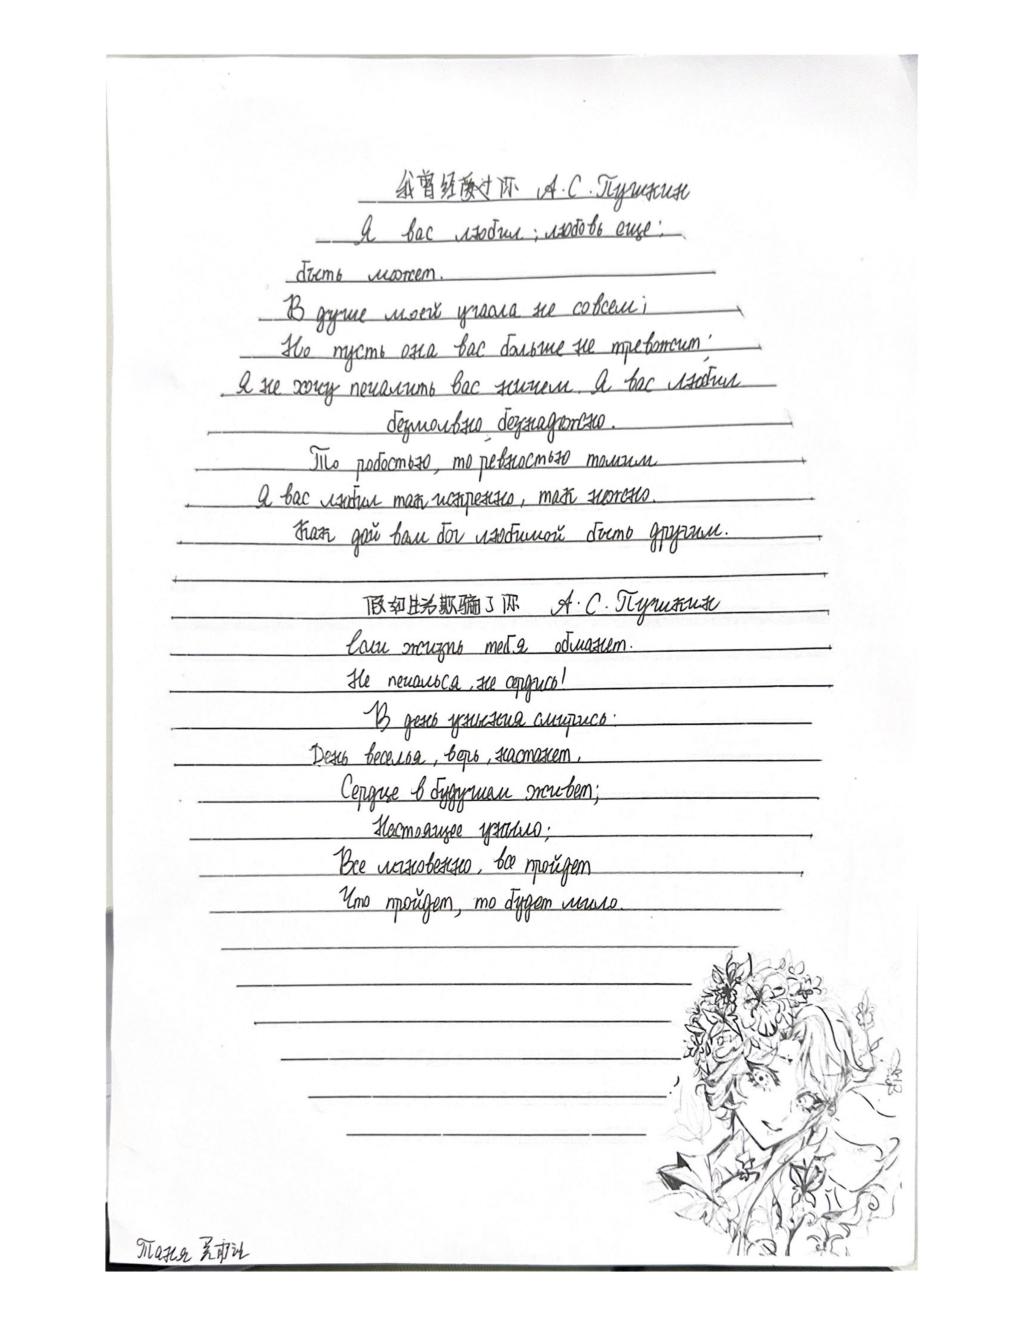 我曾经爱过你 А.С.Пушкин
Я вас любил; любовь еще;
быть может.
В душе моей угасла не совсем;
Но пусть она вас больше не тревожит;
Я не хочу печалить вас ничем. Я вас любил
безмолвно, безнадежно.
То робостью, то ревностью томим
Я вас любил так искренно, так нежно.
Как дай вам бог любимой быть другим.
假如生活欺骗了你 А.С.Пушкин
Если жизнь тебя обманет.
Не печалься, не сердись!
В день уныния смирись:
День веселья, верь, настанет.
Сердце в будущем живет;
Настоящее уныло;
Все мгновенно, все пройдет
Что пройдет, то будет мило.
Таня